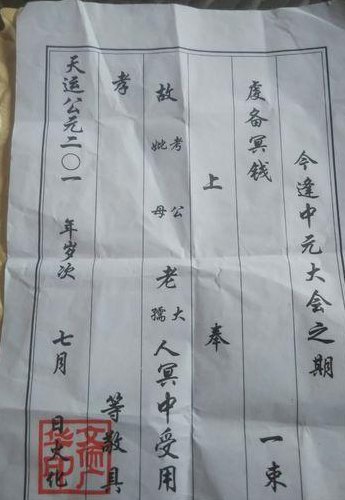 今逢中元大会之期
虔备冥钱 一束
上 奉
故 考妣 公母 老 大孺 人冥中受用
孝 等敬具
天运公元二〇一 年岁次 七月 日文化